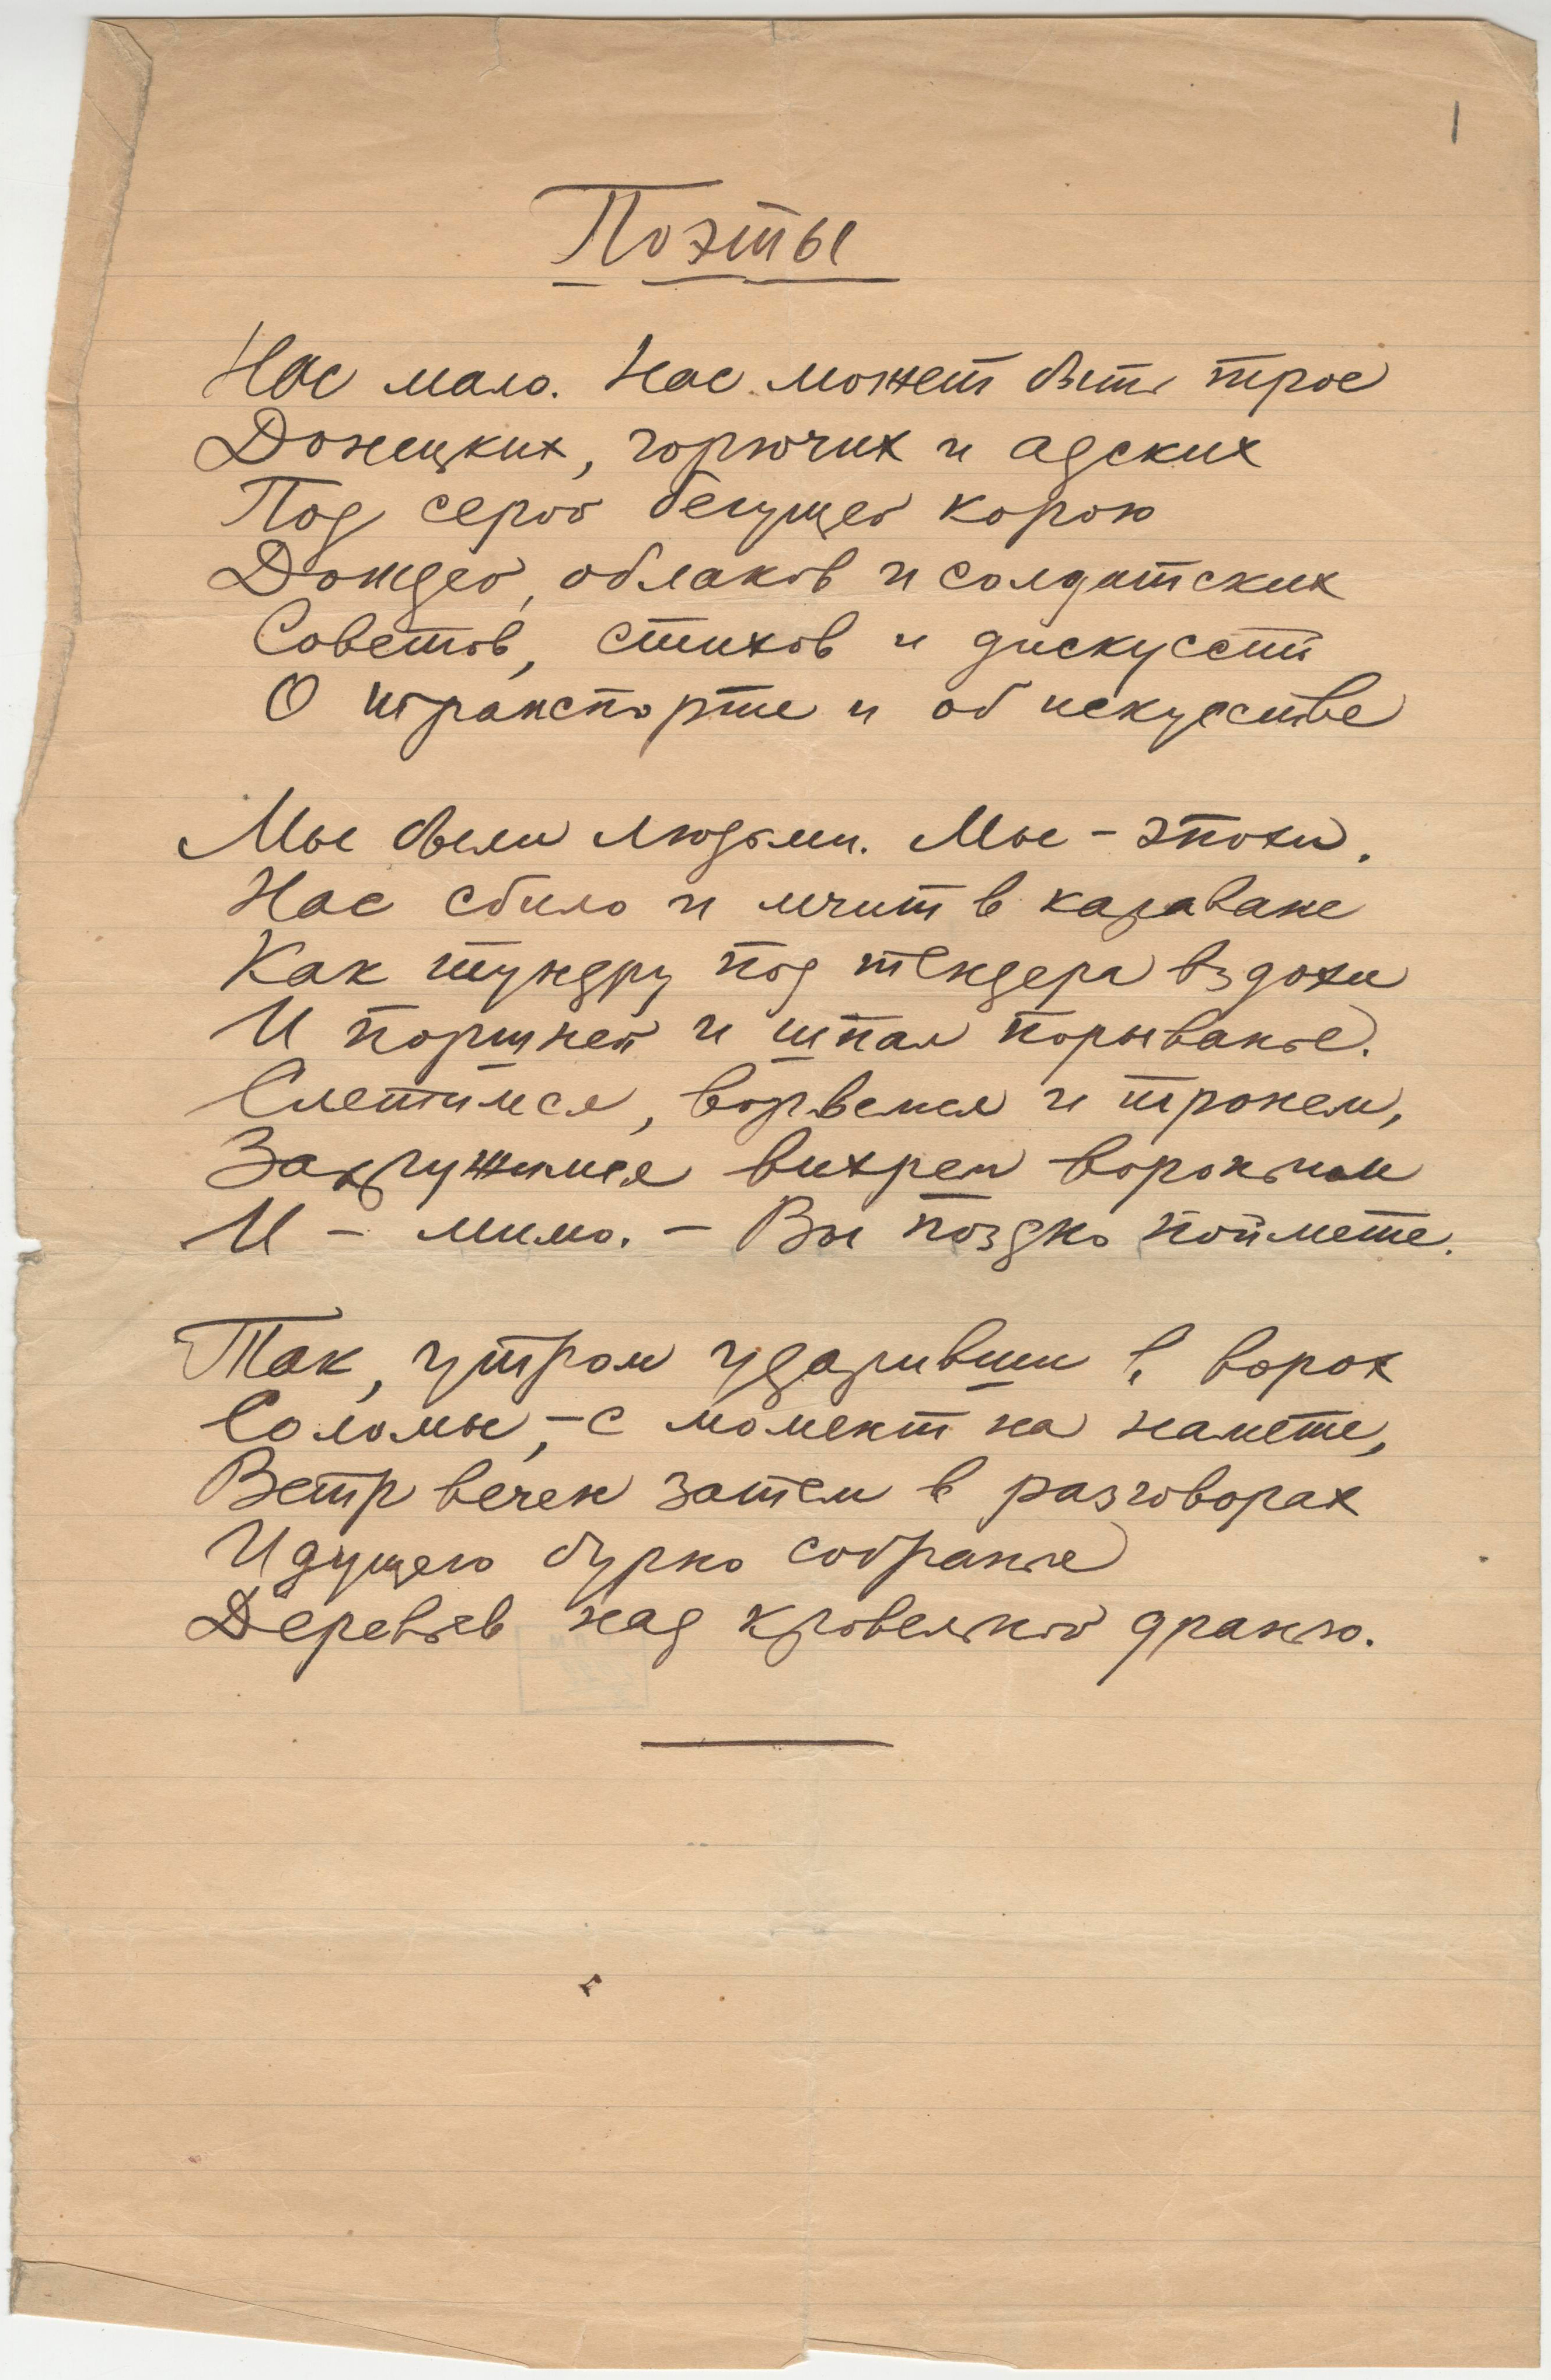 1
Поэты
Нас мало. Нас может быть трое
Донецких, горючих и адских
Под серой бегущей корою
Дождей, облаков и солдатских
Советов, стихов и дискуссий
О транспорте и об искусстве
Мы были людьми. Мы – эпохи.
Нас сбило и мчит в караване
Как тундру под тендера вздохи
И поршней и шпал порыванье.
Слетимся, ворвемся и тронем,
Закружимся вихрем вороньим
И – мимо. – Вы поздно поймете.
Так, утром ударивши в ворох
Соломы, – с момент на намете,
Ветр вечен затем в разговорах
Идущего бурно собранья
Деревьев над кровельной дранью.